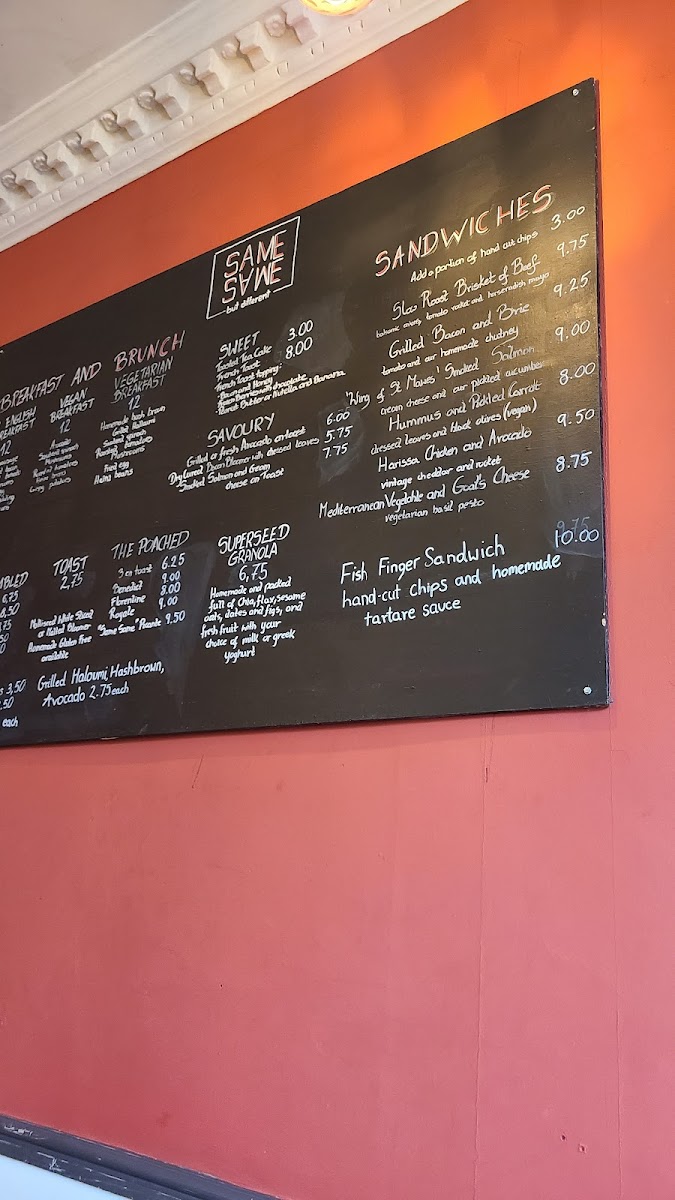 SAME
SAME
but different
BREAKFAST AND BRUNCH
ENGLISH
BREAKFAST
12
VEGAN
BREAKFAST
12
Avocado
Mushrooms
VEGETARIAN
BREAKFAST
12
Homemade hash brown
Grilled Halloumi
Sauteed spinach
Roasted tomatoes
Mushrooms
Fried egg
Heinz beans
SWEET
Toasted Tea Cake 3.00
French Toast 8.00
French Toast topping:
Bacon and Honey
Peanut Butter or Nutella and Banana
SAVOURY
Grilled or fresh Avocado on toast 6.00
Dry Cured Bacon Bloomer with dressed leaves 5.75
Smoked Salmon and Cream 7.75
cheese on Toast
SANDWICHES
Add a portion of hand cut chips 3.00
Slow Roast Brisket of Beef 9.75
balsamic onions, tomato rocket and horseradish mayo
Grilled Bacon and Brie 9.25
tomato and our homemade chutney
'Wing of St Mawes' Smoked Salmon 9.00
cream cheese and our pickled cucumber
Hummus and Pickled Carrots 8.00
dressed leaves and black olives (vegan)
Harissa Chicken and Avocado 9.50
vintage cheddar and rocket
Mediterranean Vegetable and Goat's Cheese 8.75
vegetarian basil pesto
Fish Finger Sandwich 10.00
hand-cut chips and homemade
tartare sauce
TOAST
2,75
Malted Bloomer
Homemade Gluten Free
available
THE POACHED
3 on toast 6.25
Benedict 9.00
Florentine 8.00
Royale 9.00
"Same Same" Picante 9.50
SUPERSEED
GRANOLA
6,75
Homemade and packed
full of Chia, flax, sesame
oats, dates and figs, and
fresh fruit with your
choice of milk or greek
yoghurt
3,50
each
Grilled Haloumi, Hashbrown,
Avocado 2.75 each